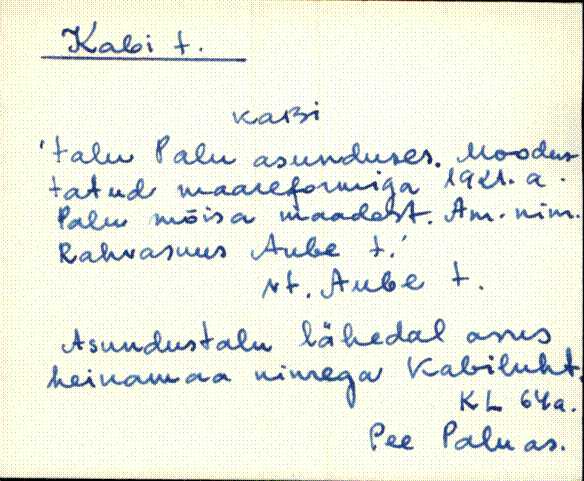 Kabi t.
kaʙi
'talu Palu asunduses. Moodus
tatud maareformiga 1921. a.
Palu mõisa maadest. Am. nim.
Rahvasuus Aube t.'
vt. Aube t.
Asundustalu lähedal asus
heinamaa nimega Kabiluht.
KL 64a.
Pee Palu as.